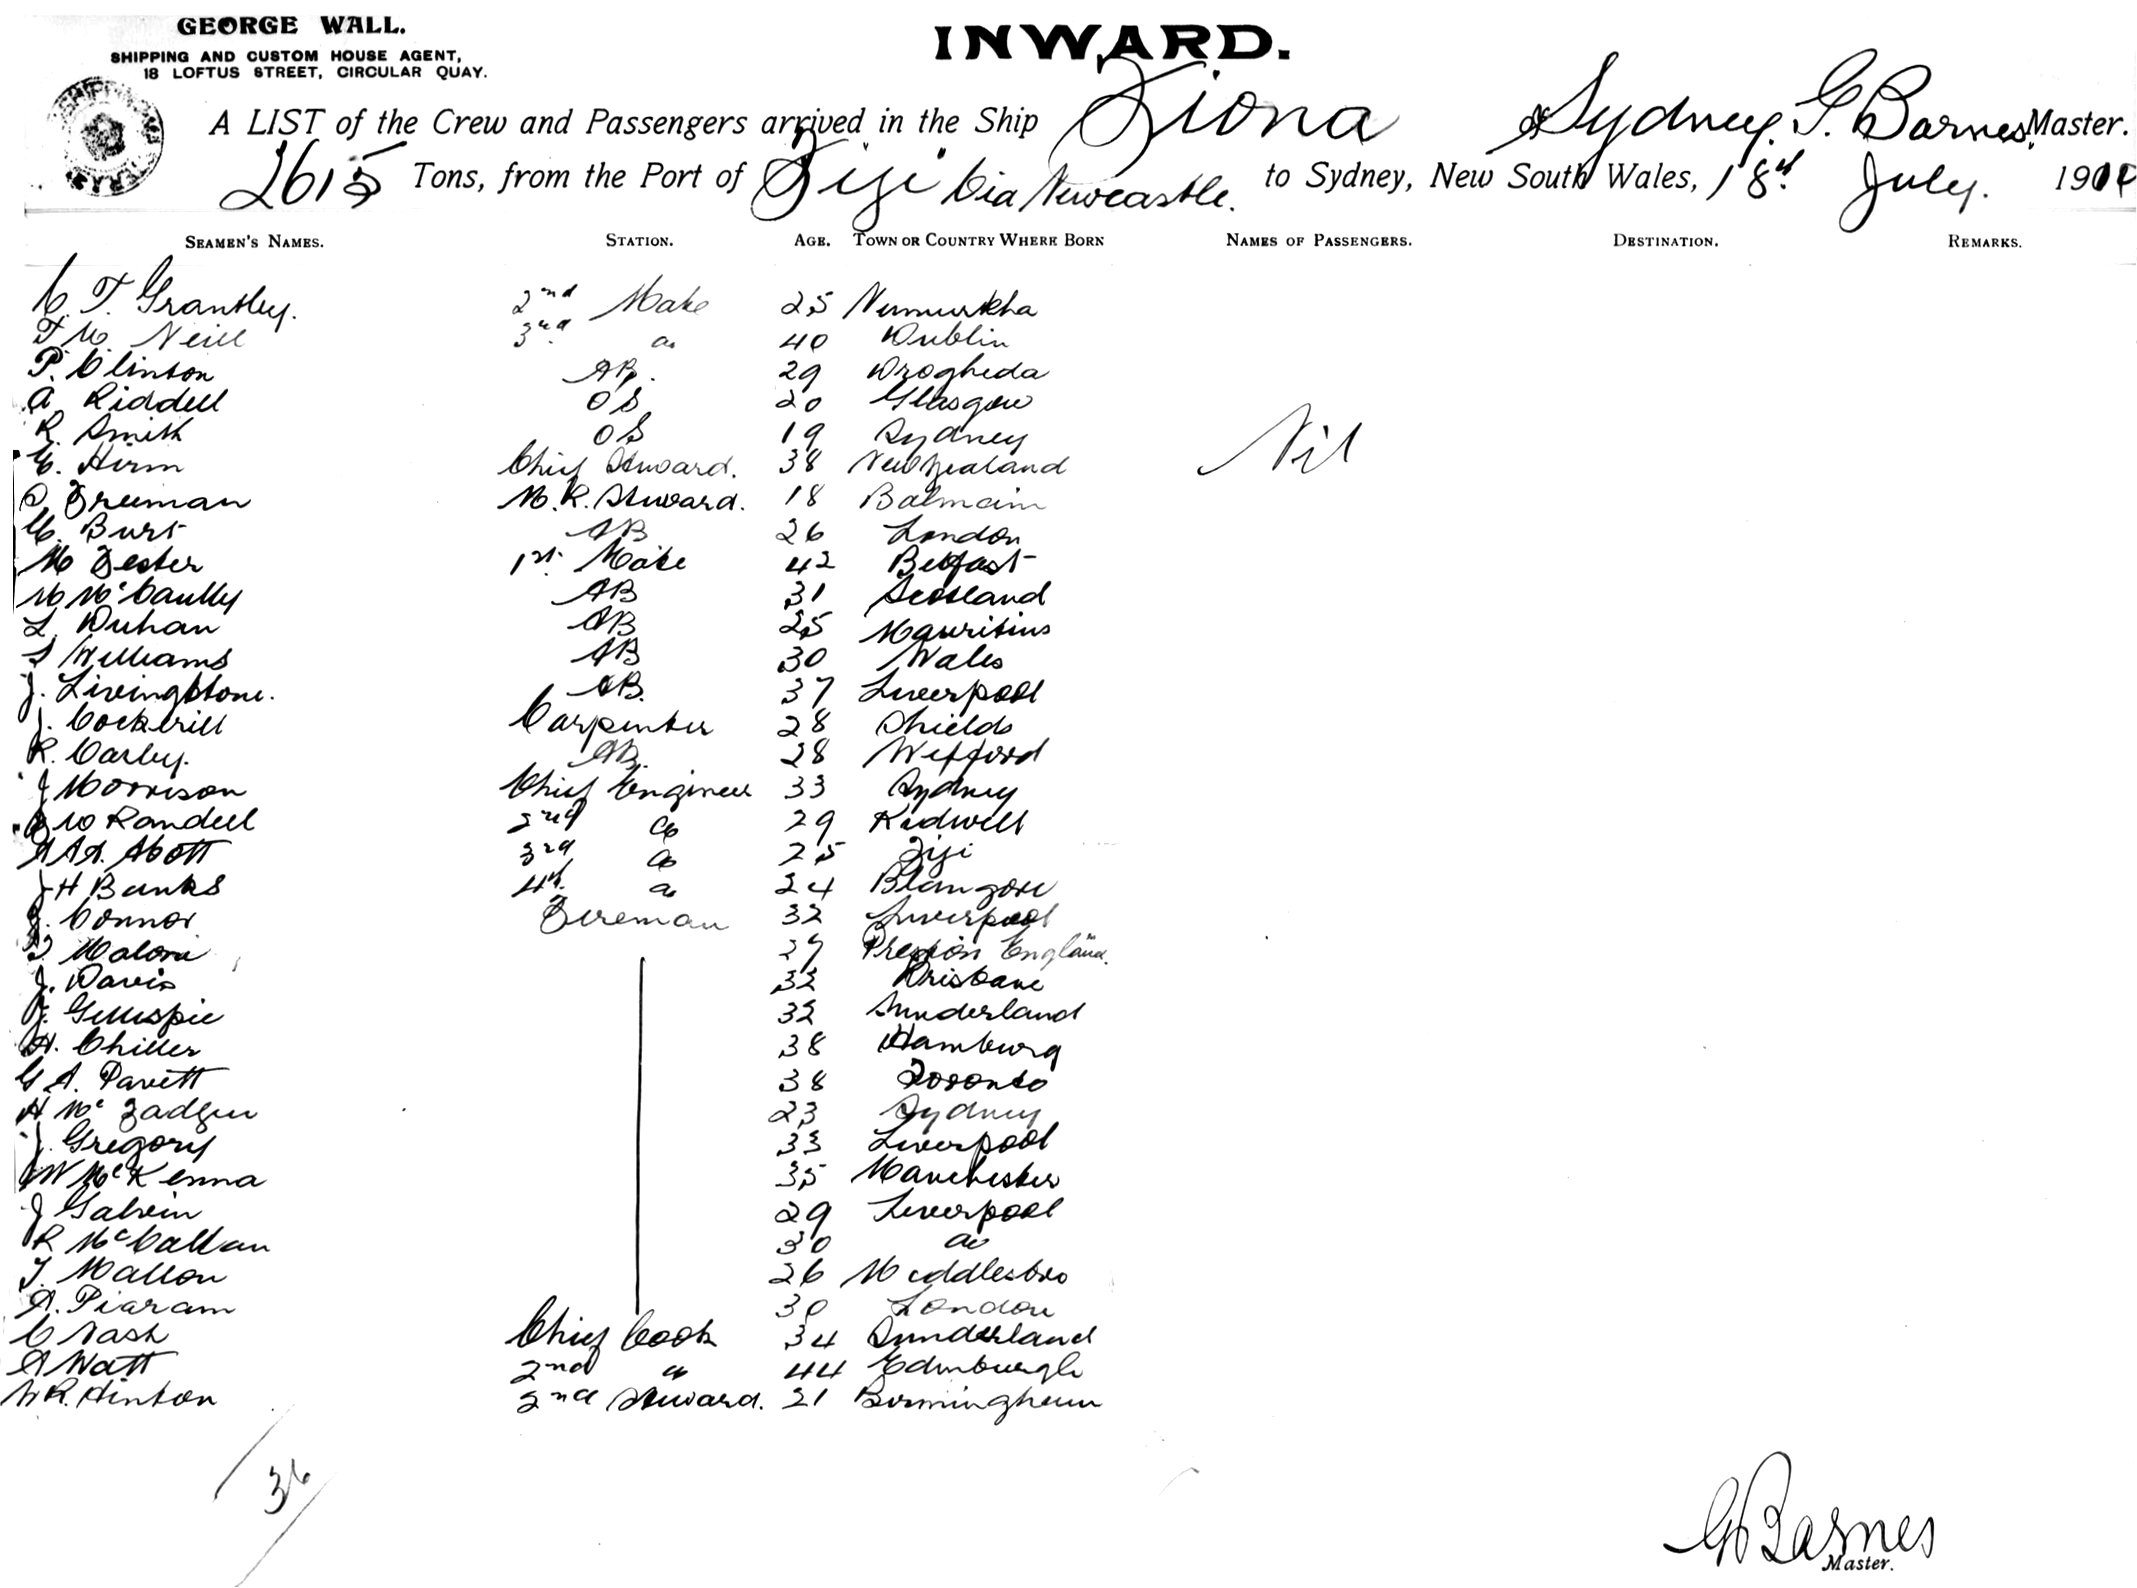 GEORGE WALL.
SHIPPING AND CUSTOM HOUSE AGENT,
18 LOFTUS STREET, CIRCULAR QUAY.
INWARD.
A LIST of the Crew and Passengers arrived in the Ship Fiona of Sydney. G. Barnes, Master.
2615 Tons, from the Port of Fiji Via Newcastle. to Sydney, New South Wales, 18th July. 191
SEAMEN'S NAMES. STATION. AGE. TOWN OR COUNTRY WHERE BORN NAMES OF PASSENGERS. DESTINATION. REMARKS.
C. T. Grantley. 2nd Mate 25 Numurkha
T. M. Neill 3rd " 40 Dublin
P. Clinton AB. 29 Drogheda
A. Riddell OS 20 Glasgow
R. Smith OS 19 Sydney
E. Hirm Chief Steward. 38 New Zealand Nil
S. Freeman M. R. Steward. 18 Balmain
C. Burt AB 26 London
M Fester 1st Mate 42 Belfast
M McCaully AB 31 Scotland
L Duhan AB 25 Mauritius
S Williams AB 30 Wales
J. Livingstone. AB. 37 Liverpool
J. Cockerill Carpenter 28 Shields
R. Carley. AB. 28 Wexford
J Morrison Chief Engineer 33 Sydney
Randell 2nd do 29 Kidwell
A. Abott 3rd do 25 Fiji
J H Banks 4th do 24 Blangore
J. Connor Fireman 32 Liverpool
Malone 27 Preston England.
J. Davis 32 Brisbane
J. Gillespie 32 Sunderland
H. Chiller 38 Hamburg
G A. Pavett 38 Toronto
H Mc Fadgen 23 Sydney
J. Gregory 33 Liverpool
W McKenna 35 Manchester
J Galvin 29 Liverpool
R McCallan 30 do
T. Mallon 26 Middlesbro
A. Piaram 30 London
C Nash Chief Cook 34 Sunderland
A Watt 2nd " 44 Edinburgh
W R. Hinton 2nd Steward. 21 Birmingham
36
G Barnes
Master.